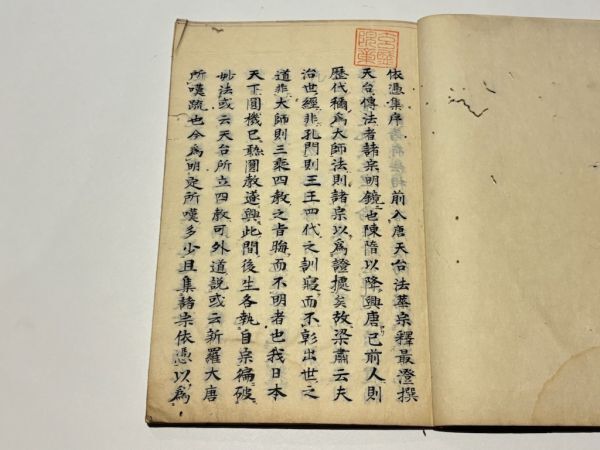 依憑集序 前入唐天台法華宗釋最澄撰
天台傳法者諸宗明鏡也陳隋以降興唐已前人則
歷代稱為大師法則諸宗以為證據矣故梁肅云夫
治世經非孔門則三王四代之訓寢而不彰出世之
道非大師則三乘四教之旨晦而不明者也我日本
天下圓機已熟圓教遂興此間後生各執自宗徧破
妙法或云天台所立四教可外道説或云新羅大唐
所嘆疏也今為明定所嘆多少且集諸宗依憑以為